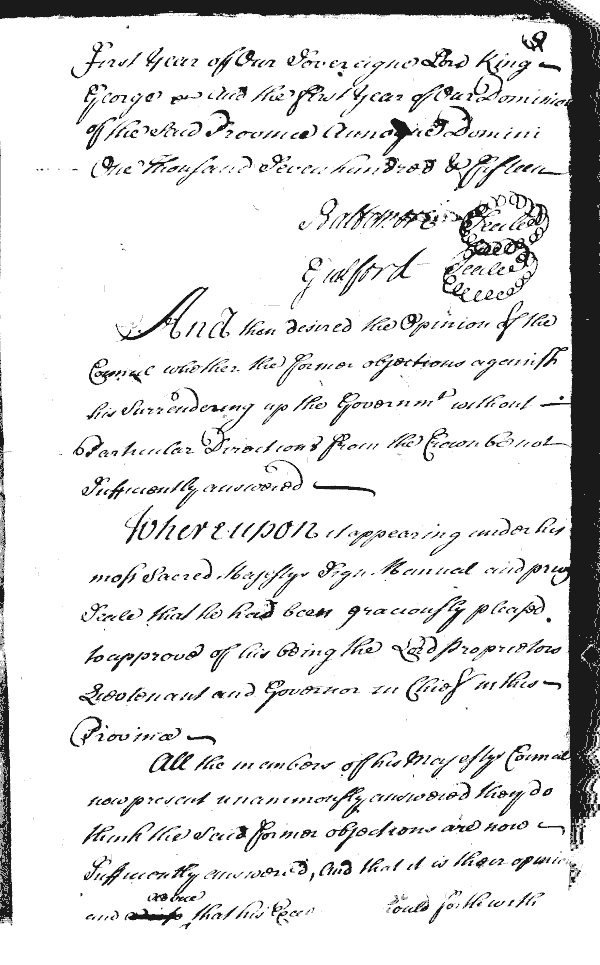 First Year of Our Sovereigne Lord King
George and the first Year of Our Dominion
of the Said Province Annoque Domini
One thousand Seven hundred & fifteen
Baltemore Seale
Guilford Seale
And then desired the Opinion of the
Council whether the former objections against
his Surrendering up the Governmt without
Particular Directions from the Crown be not
Sufficiently answered
Whereupon it appearing under his
most Sacred Majestys Sign Manual and privy
Seale that he had been graciously pleased
to approve of his being the Lord Proprietors
Lieutenant and Governor in Chief in this
Province
All the members of his Majestys Council
now present unanimously answered they do
think the Said former objections are now
Sufficiently answered, And that it is their opinion
advice
and that his would forthwith